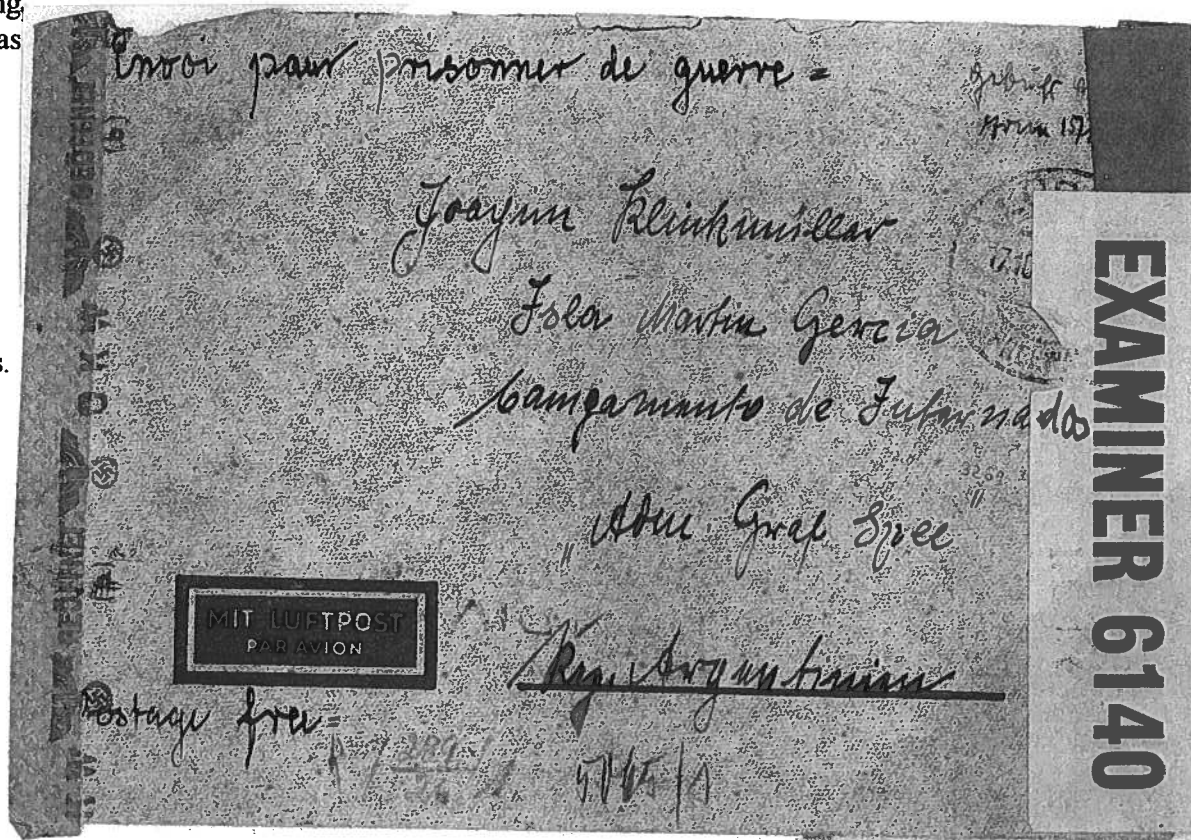 ng
as
s.
Envoi pour prisonner de guerre =
Joachim Klinkmüller
Isla Martin Gercia
Campamento de Internados
"Adm. Graf Spee"
Rep. Argentinien
MIT LUFTPOST
PAR AVION
Postage free =
EXAMINER 6140
17.10
3269